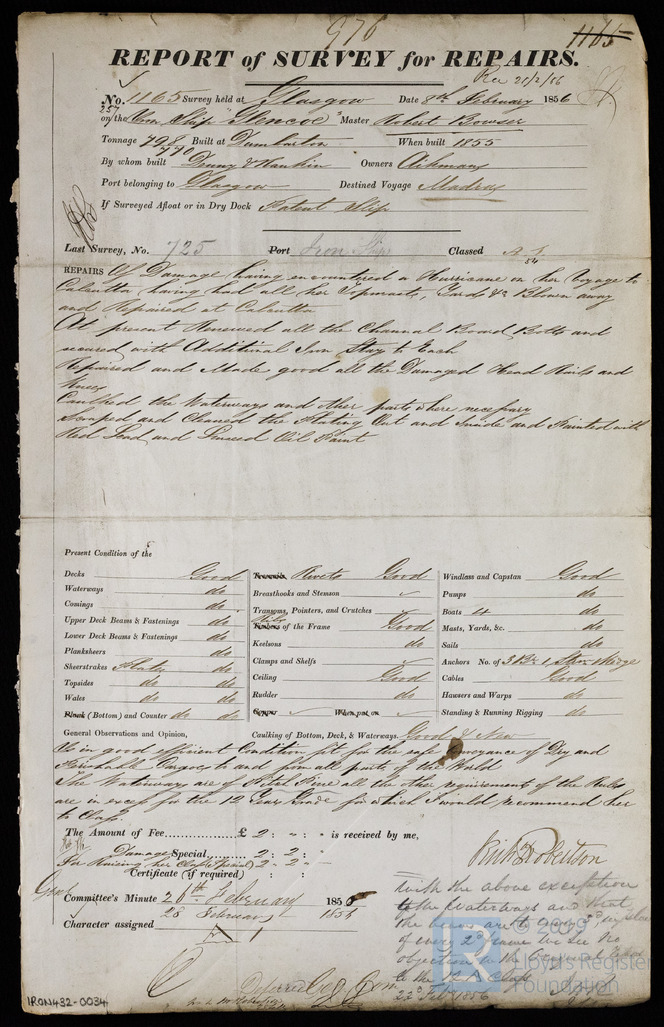 976
1165
REPORT of SURVEY for REPAIRS.
Rec 25/2/56
No. 1165 Survey held at Glasgow Date 8th February 1856
257
on the Iron Ship "Glencoe" Master Robert Bowser
Tonnage 798 Built at Dumbarton When built 1855
770
By whom built Denny & Rankin Owners Aikman
Port belonging to Glasgow Destined Voyage Madras
If Surveyed Afloat or in Dry Dock Patent Slip
Last Survey, No. 725 Port Iron Ship Classed A 1
REPAIRS Of Damage having encountered a Hurricane on her Voyage to
Calcutta having had all her Topmasts, Yards &c Blown away
and Repaired at Calcutta
At present Renewed all the Channel Board Bolts and
secured with Additional Iron Stay to Each
Repaired and Made good all the Damaged Head Rails and
Knees
Caulked the Waterways and other parts where necessary
Scraped and Cleaned the Plating Out and Inside and Painted with
Red Lead and Linseed Oil Paint
Present Condition of the
Decks Good Rivets Good Windlass and Capstan Good
Waterways do Breasthooks and Stemson Pumps do
Comings do Transoms, Pointers, and Crutches Boats 4 do
Upper Deck Beams & Fastenings do Timbers of the Frame Good Masts, Yards, &c. do
Lower Deck Beams & Fastenings do Keelsons do Sails do
Planksheers do Clamps and Shelfs Anchors No. of 3 Br 1 Str
Sheerstrakes Plates do Ceiling Good Cables Good
Topsides do do Rudder do Hawsers and Warps do
Wales do do Copper When put on Standing & Running Rigging do
Plank (Bottom) and Counter do do
General Observations and Opinion, Caulking of Bottom, Deck, & Waterways Good & New
Is in good efficient Condition fit for the safe Conveyance of Dry and
Perishable Cargoes to and from all parts of the World
The Waterways are of Pitch Pine all the other requirements of the Rules
are in excess for the 12 Years Grade for which I would recommend her
to Class.
The Amount of Fee £ 2 : " : " is received by me,
Damage Special 2 : 2 : "
For Raising her Class (Special) 2 : 2 : —
Certificate (if required) : :
Robertson
Committee's Minute 26th February 1856
Character assigned 28 February 1856
A 1
With the above exception
of the Waterways and that
the beams are to every 3rd in place
of every 2d frame we see no
objection to the
to the 12 A Class
23d Feb 1856
Deferred
IRON432-0034
© 2019
Lloyd's Register
Foundation